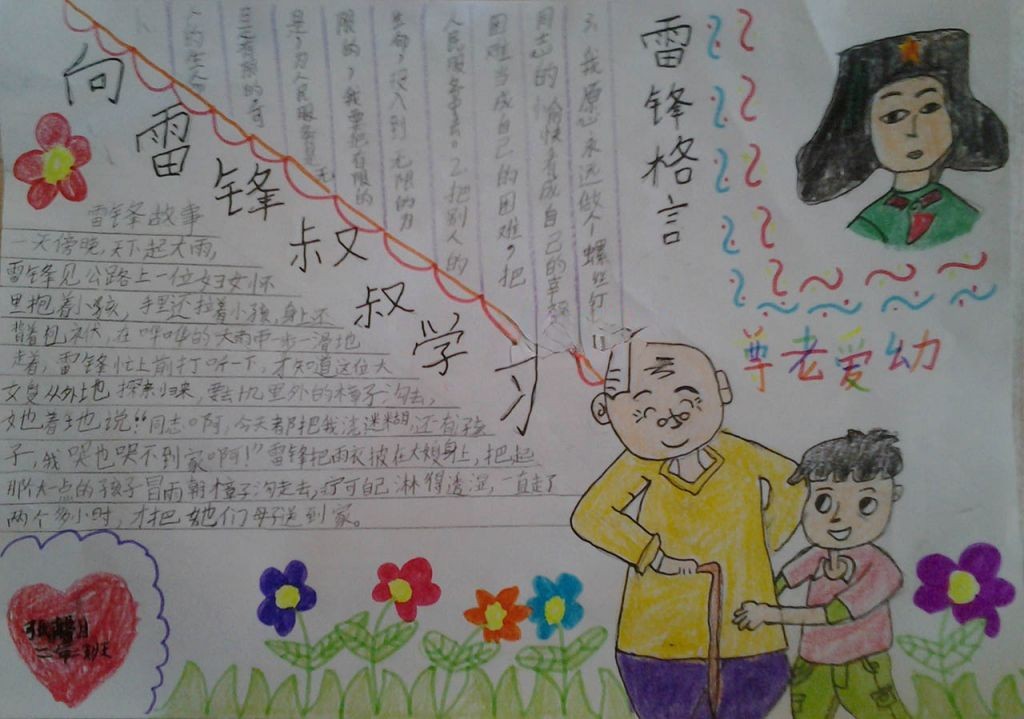 向雷锋叔叔学习
雷锋格言
3、我愿永远做个螺丝钉
同志的愉快看成自己的幸福
困难当成自己的困难，把
人民服务中去。2把别人的
生命，投入到无限的为
限的，我要把有限的
是，为人民服务是无
尊老爱幼
雷锋故事
一天傍晚，天下起大雨，
雷锋见公路上一位妇女怀
里抱着小孩，手里还拉着小孩，身上还
背着包袱，在哗哗的大雨中一步一滑地
走着，雷锋忙上前打听一下，才知道这位大
从外地探亲归来，要去几里外的樟子沟去，
她着地说“同志啊，今天都把我浇迷糊，还有孩
子，我哭也哭不到家啊！”雷锋把雨衣披在大娘身上，把起
那大一点的孩子冒雨朝樟子沟走去，宁可自己淋得透湿，一直走了
两个多小时，才把她们母子送到家。
二年二班